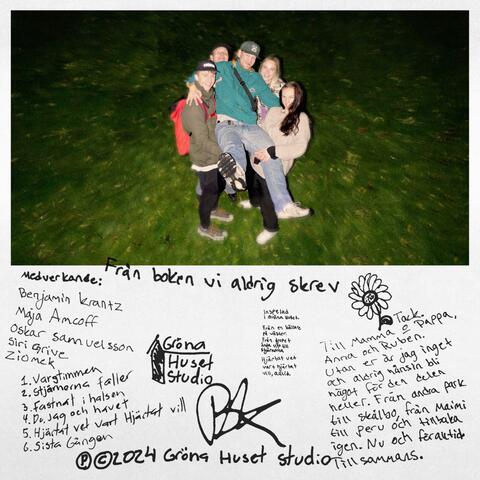 Från boken vi aldrig skrev
Medverkande:
Benjamin Krantz
Maja Amcoff
Oskar Samuelsson
Siri Grive
Ziomek
1. Vargtimmen
2. Stjärnorna faller
3. Fastnat i halsen
4. Du, Jag och havet
5. Hjärtat vet vart Hjärtat vill
6. Sista Gången
Gröna
Huset
Studio
Inspelad
i andra
Från en
på
Från
Hjärtat vet
vart hjärtat
vill
Tack.
Till Mamma & Pappa,
Anna och Ruben.
Utan er är jag inget
och aldrig nånsin blir
något för den delen
heller. Från andra park
till Skälbo, från Maimi
till Peru och tillbaka
igen. Nu och föralltid
Tillsammans.
℗©2024 Gröna Huset Studio